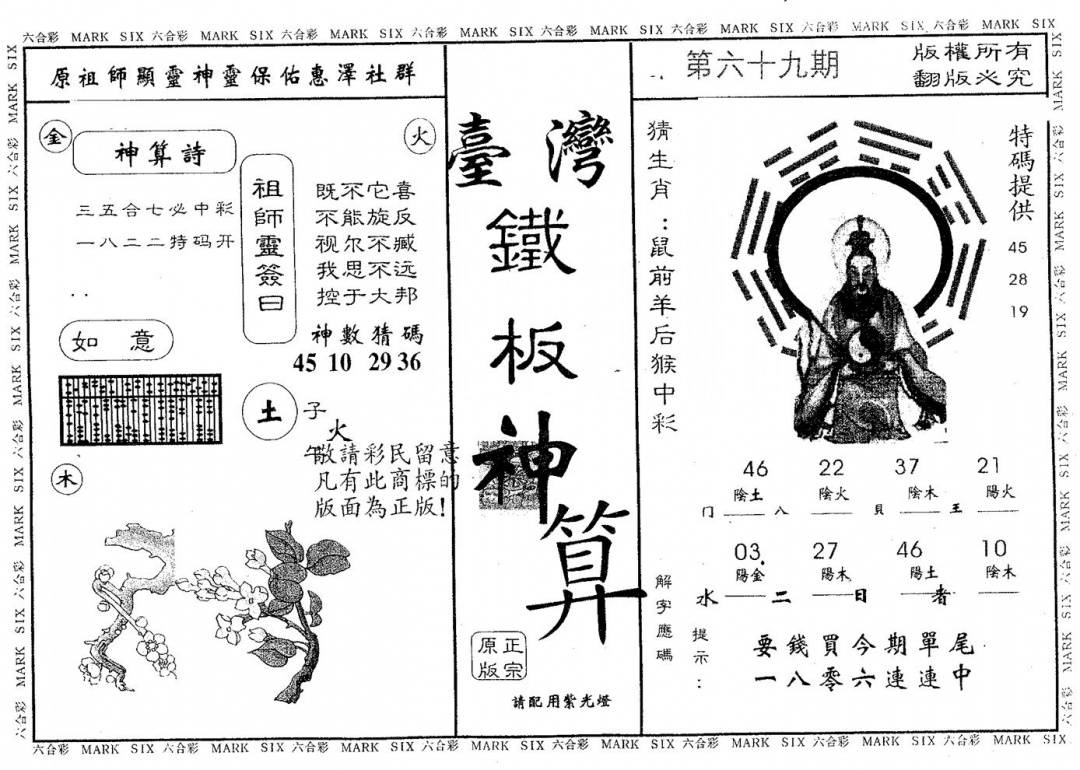 六合彩 MARK SIX 六合彩 MARK SIX 六合彩 MARK SIX 六合彩 MARK SIX 六合彩 MARK SIX 六合彩 MARK SIX 六合彩 MARK SIX 六合彩 MARK SIX
原祖師顯靈神靈保佑惠澤社群
金
神算詩
火
三五合七必中彩
一八二二特码开
祖師靈簽曰
既不它喜
不能旋反
视尔不臧
我思不远
控于大邦
神數猜碼
45 10 29 36
如意
土
子
火
午
敬請彩民留意
凡有此商標的
版面為正版!
木
臺灣
鐵
板
神
算
正宗
原版
請配用紫光燈
第六十九期
版權所有
翻版必究
猜生肖:鼠前羊后猴中彩
特碼提供
45
28
19
46 22 37 21
陰土 陰火 陰木 陽火
门 八 貝 王
03 27 46 10
陽金 陽木 陽土 陰木
水 二 日 者
解字應碼
提示:
要錢買今期單尾
一八零六連連中
六合彩 MARK SIX 六合彩 MARK SIX 六合彩 MARK SIX 六合彩 MARK SIX 六合彩 MARK SIX 六合彩 MARK SIX 六合彩 MARK SIX 六合彩 MARK SIX